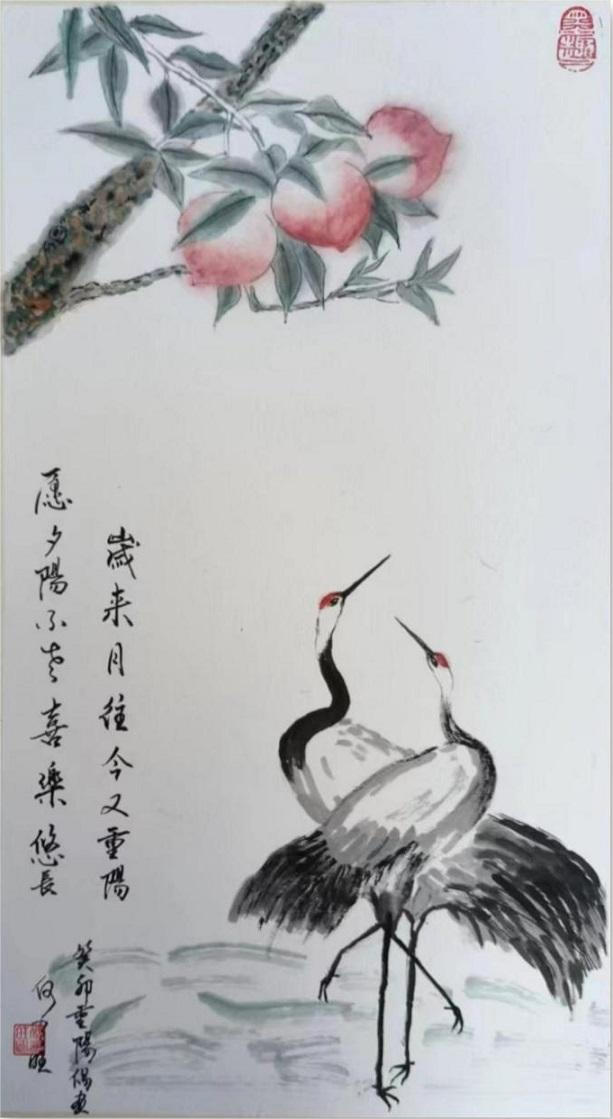 墨趣
歲来月往今又重陽
愿夕陽不老喜樂悠長
癸卯重陽偶畫